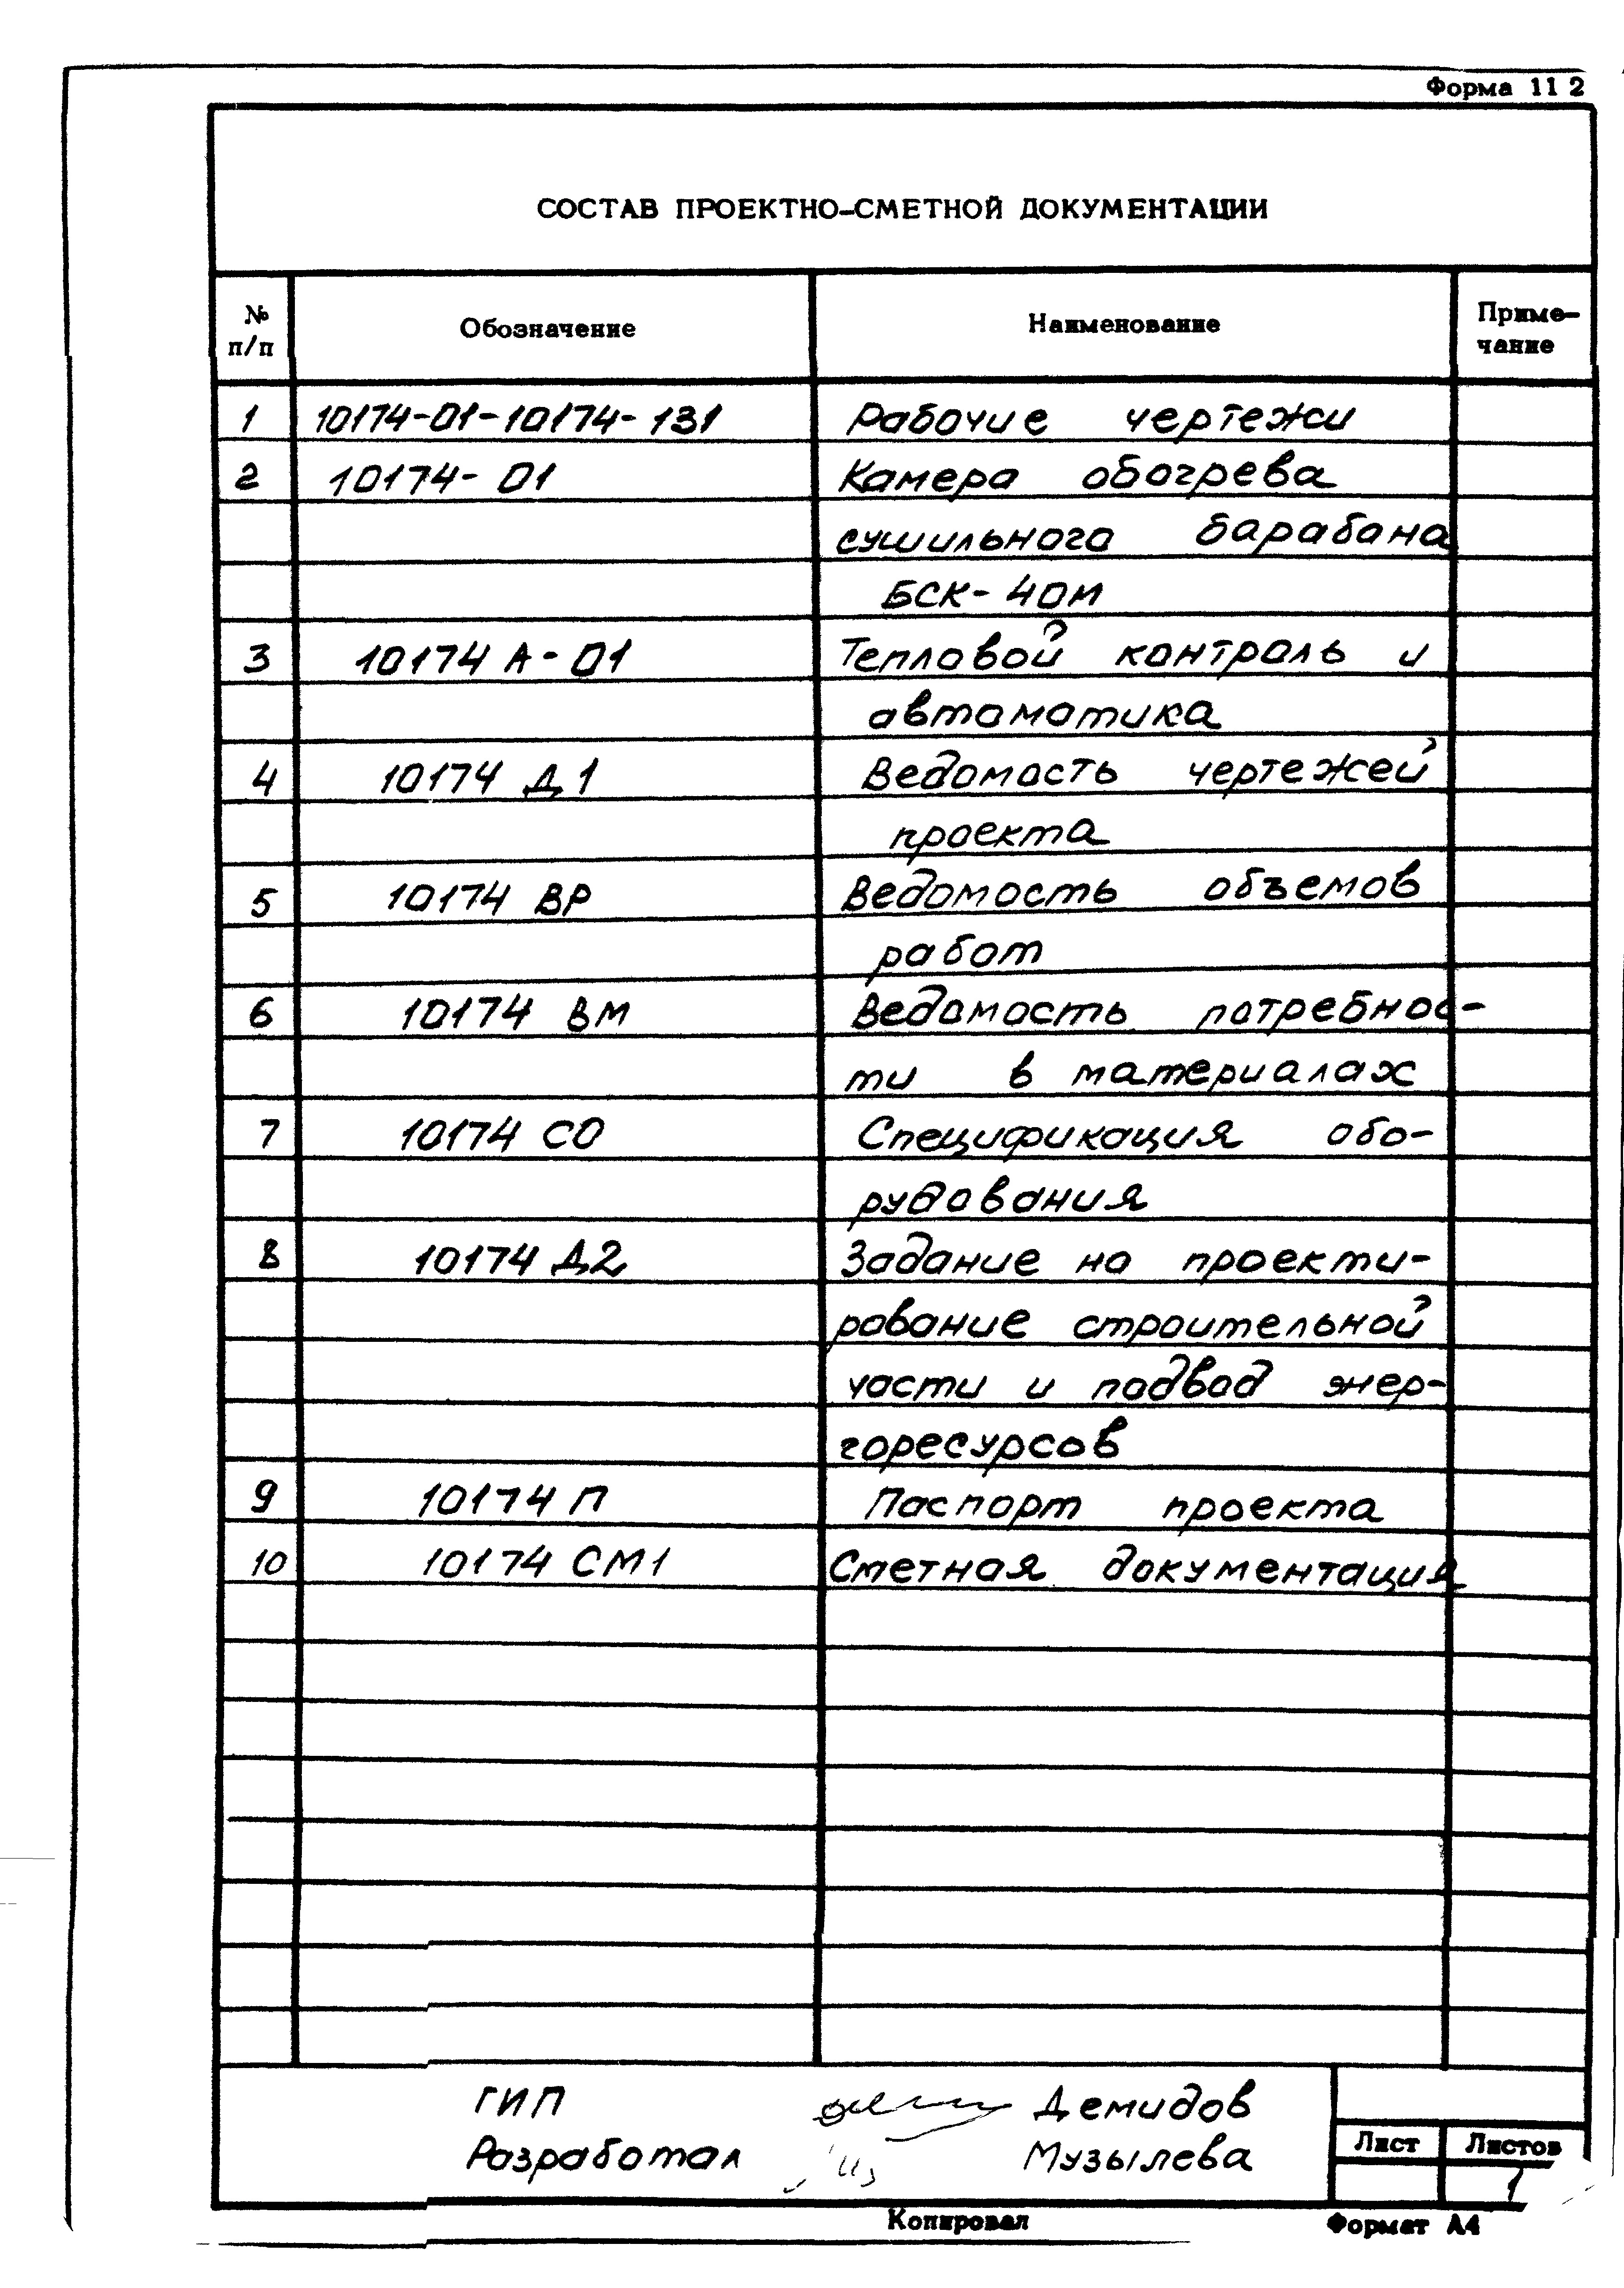 Форма 11 2
СОСТАВ ПРОЕКТНО-СМЕТНОЙ ДОКУМЕНТАЦИИ
№ п/п Обозначение Наименование Приме-чание
1 10174-01-10174-131 Рабочие чертежи
2 10174-01 Камера обогрева
сушильного барабана
БСК-40м
3 10174 А-01 Тепловой контроль и
автоматика
4 10174 Д1 Ведомость чертежей
проекта
5 10174 ВР Ведомость объемов
работ
6 10174 ВМ Ведомость потребнос-
ти в материалах
7 10174 СО Спецификация обо-
рудования
8 10174 Д2 Задание на проекти-
рование строительной
части и подвод энер-
горесурсов
9 10174 П Паспорт проекта
10 10174 СМ1 Сметная документация
ГИП Демидов
Разработал Музылева
Лист Листов
1
Копировал Формат А4